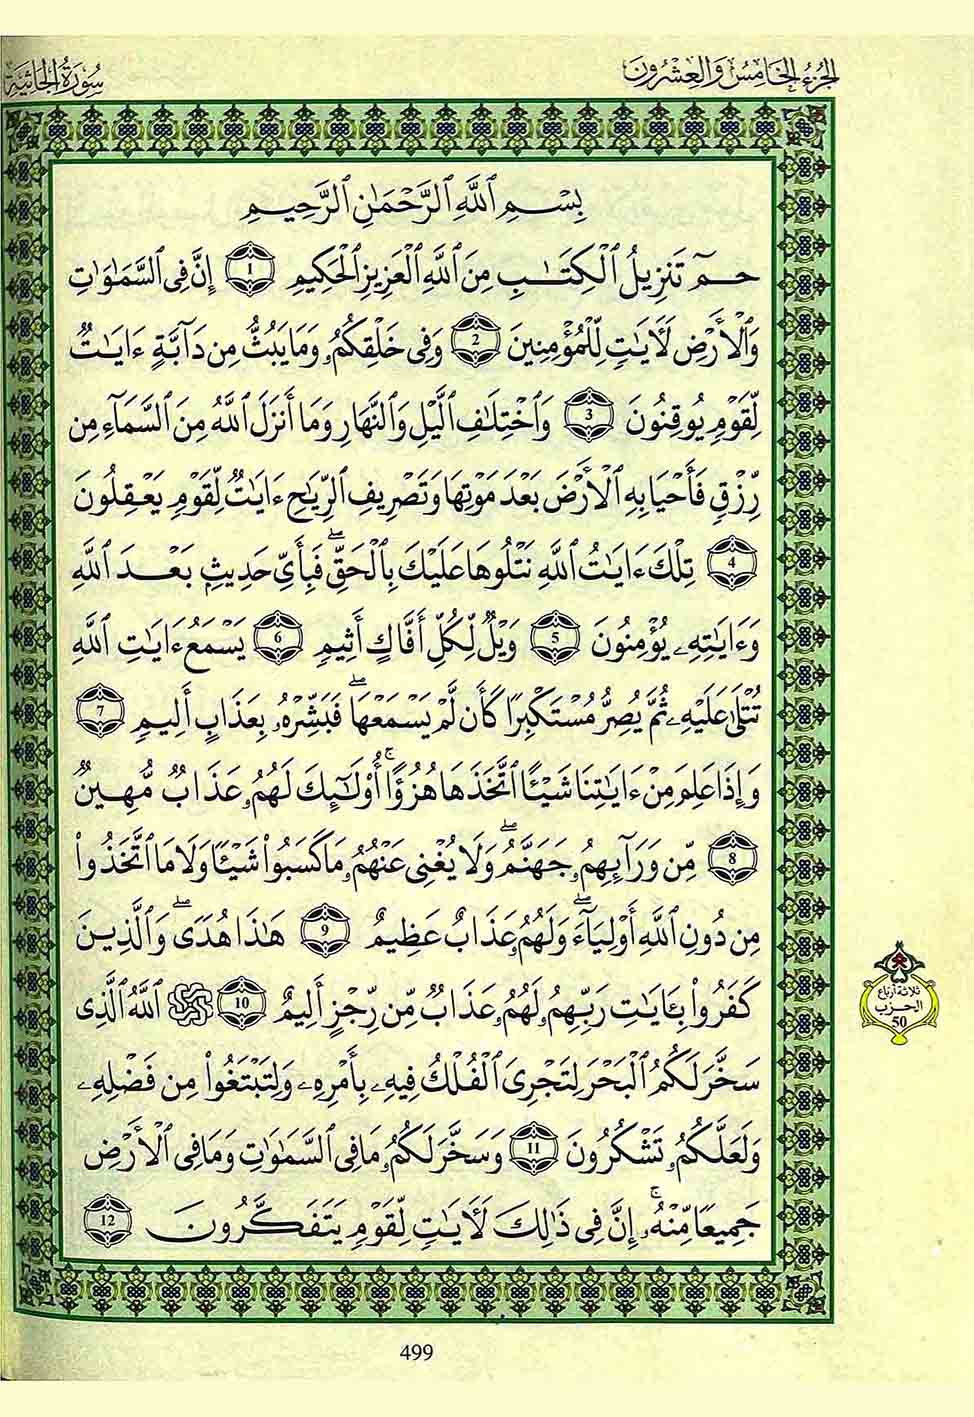 الجُزْءُ الخَامِسُ وَالعِشْرُونَ
سُورَةُ الجَاثِيَةِ
بِسْمِ ٱللَّهِ ٱلرَّحْمَٰنِ ٱلرَّحِيمِ
حمٓ تَنزِيلُ ٱلْكِتَٰبِ مِنَ ٱللَّهِ ٱلْعَزِيزِ ٱلْحَكِيمِ 1 إِنَّ فِى ٱلسَّمَٰوَٰتِ
وَٱلْأَرْضِ لَأٓيَٰتٍ لِّلْمُؤْمِنِينَ 2 وَفِى خَلْقِكُمُۥ وَمَا يَبُثُّ مِن دَآبَّةٍ ءَايَٰتٌ
لِّقَوْمٍ يُوقِنُونَ 3 وَٱخْتِلَٰفِ ٱلَّيْلِ وَٱلنَّهَارِ وَمَا أَنزَلَ ٱللَّهُ مِنَ ٱلسَّمَآءِ مِن
رِّزْقٍ فَأَحْيَا بِهِ ٱلْأَرْضَ بَعْدَ مَوْتِهَا وَتَصْرِيفِ ٱلرِّيَٰحِ ءَايَٰتٌ لِّقَوْمٍ يَعْقِلُونَ
4 تِلْكَ ءَايَٰتُ ٱللَّهِ نَتْلُوهَا عَلَيْكَ بِٱلْحَقِّۖ فَبِأَىِّ حَدِيثٍۭ بَعْدَ ٱللَّهِ
وَءَايَٰتِهِۦ يُؤْمِنُونَ 5 وَيْلٌ لِّكُلِّ أَفَّاكٍ أَثِيمٍ 6 يَسْمَعُ ءَايَٰتِ ٱللَّهِ
تُتْلَىٰ عَلَيْهِۦ ثُمَّ يُصِرُّ مُسْتَكْبِرًا كَأَن لَّمْ يَسْمَعْهَاۖ فَبَشِّرْهُۥ بِعَذَابٍ أَلِيمٍ 7
وَإِذَا عَلِمَ مِنْ ءَايَٰتِنَا شَيْـًٔا ٱتَّخَذَهَا هُزُؤًاۚ أُوْلَٰٓئِكَ لَهُمُۥ عَذَابٌ مُّهِينٌ
8 مِّن وَرَآئِهِمُۥ جَهَنَّمُۖ وَلَا يُغْنِى عَنْهُمُۥ مَا كَسَبُوا۟ شَيْـًٔا وَلَا مَا ٱتَّخَذُوا۟
مِن دُونِ ٱللَّهِ أَوْلِيَآءَۖ وَلَهُمُۥ عَذَابٌ عَظِيمٌ 9 هَٰذَا هُدًىۖ وَٱلَّذِينَ
كَفَرُوا۟ بِـَٔايَٰتِ رَبِّهِمُۥ لَهُمُۥ عَذَابٌ مِّن رِّجْزٍ أَلِيمٌ 10 ٱللَّهُ ٱلَّذِى
سَخَّرَ لَكُمُ ٱلْبَحْرَ لِتَجْرِىَ ٱلْفُلْكُ فِيهِۦ بِأَمْرِهِۦ وَلِتَبْتَغُوا۟ مِن فَضْلِهِۦ
وَلَعَلَّكُمُۥ تَشْكُرُونَ 11 وَسَخَّرَ لَكُمُۥ مَا فِى ٱلسَّمَٰوَٰتِ وَمَا فِى ٱلْأَرْضِ
جَمِيعًا مِّنْهُۥۚ إِنَّ فِى ذَٰلِكَ لَأٓيَٰتٍ لِّقَوْمٍ يَتَفَكَّرُونَ 12
ثلاثة أرباع
الحزب
50
499